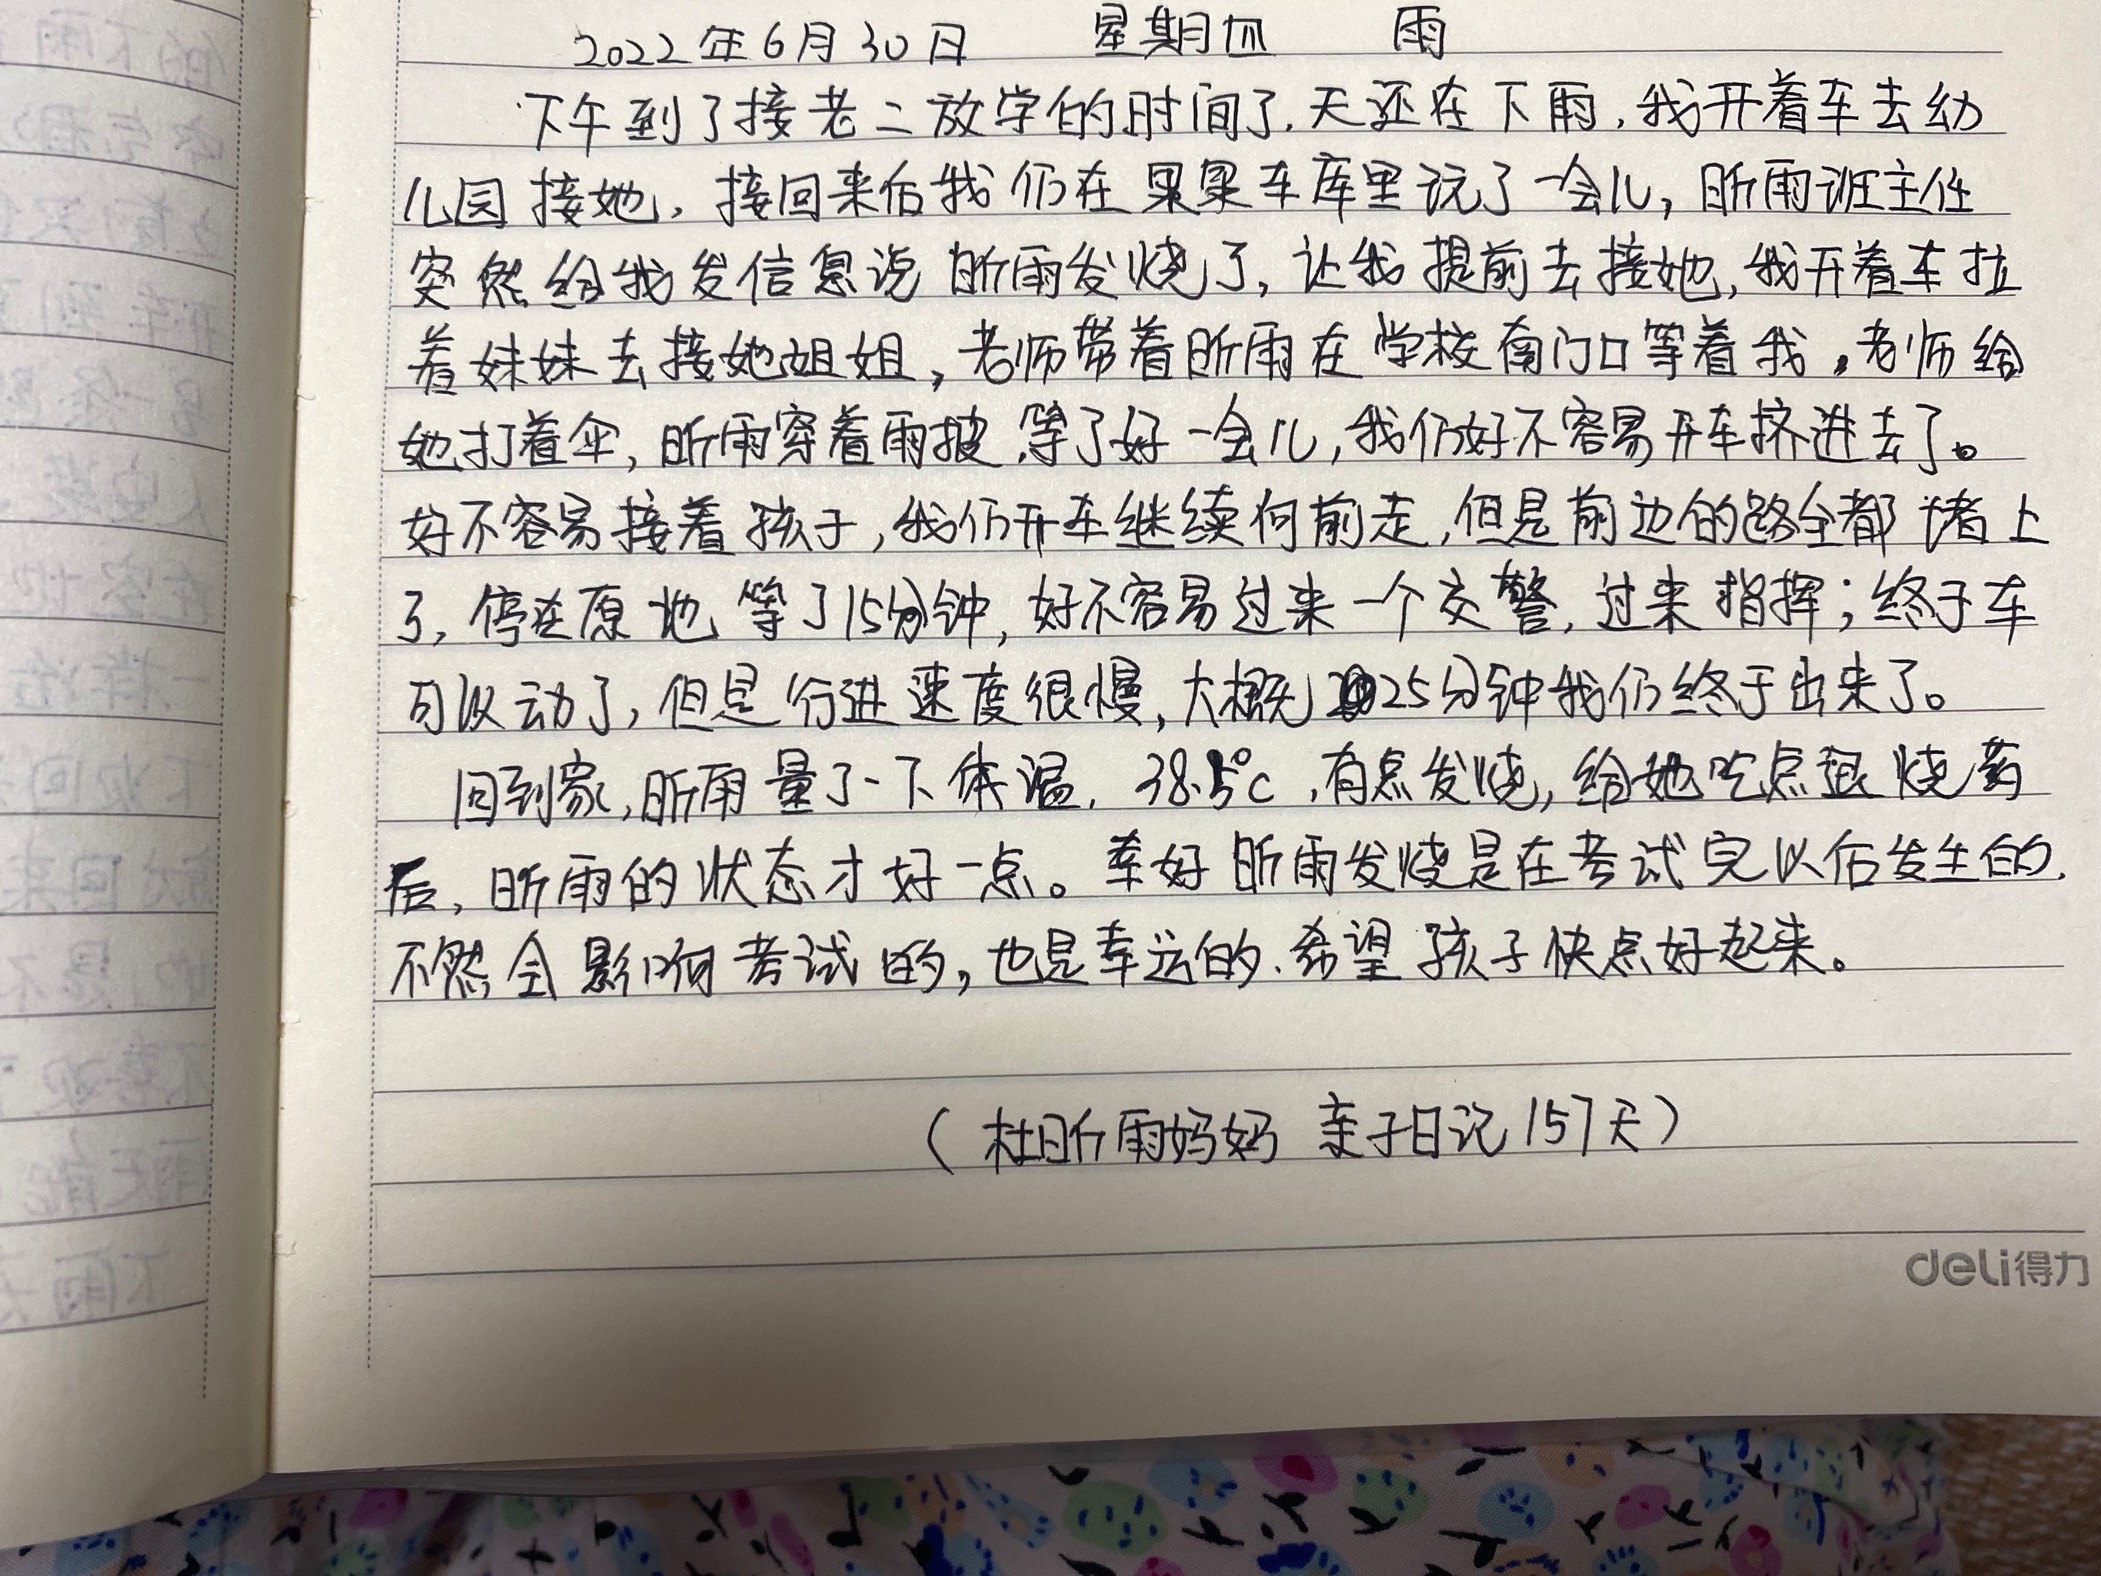 2022年6月30日 星期四 雨
下午到了接老二放学的时间了.天还在下雨.我开着车去幼
儿园接她,接回来后我们在果果车库里玩了一会儿,昕雨班主任
突然给我发信息说昕雨发烧了,让我提前去接她,我开着车拉
着妹妹去接她姐姐,老师带着昕雨在学校南门口等着我,老师给
她打着伞,昕雨穿着雨披.等了好一会儿,我们好不容易开车挤进去了。
好不容易接着孩子,我们开车继续向前走,但是前边的路全都堵上
了,停在原地等了15分钟,好不容易过来一个交警,过来指挥;终于车
可以动了,但是行进速度很慢,大概25分钟我们终于出来了。
回到家,昕雨量了一下体温,38.5℃,有点发烧,给她吃点退烧药
后,昕雨的状态才好一点。幸好昕雨发烧是在考试完以后发生的.
不然会影响考试的,也是幸运的.希望孩子快点好起来。
(杜昕雨妈妈 亲子日记157天)
deli得力